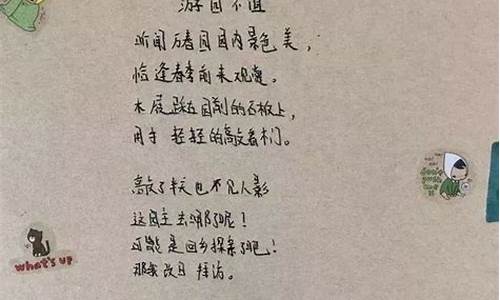 游园不值
听闻万春园园内景色美，
恰逢春季前来观赏。
木屐踩在园前的石板上，
用手轻轻的敲着木门。
敲了半天也不见人影
这园主去哪了呢！
可能是回乡探亲了吧！
那我改日拜访。
what's up